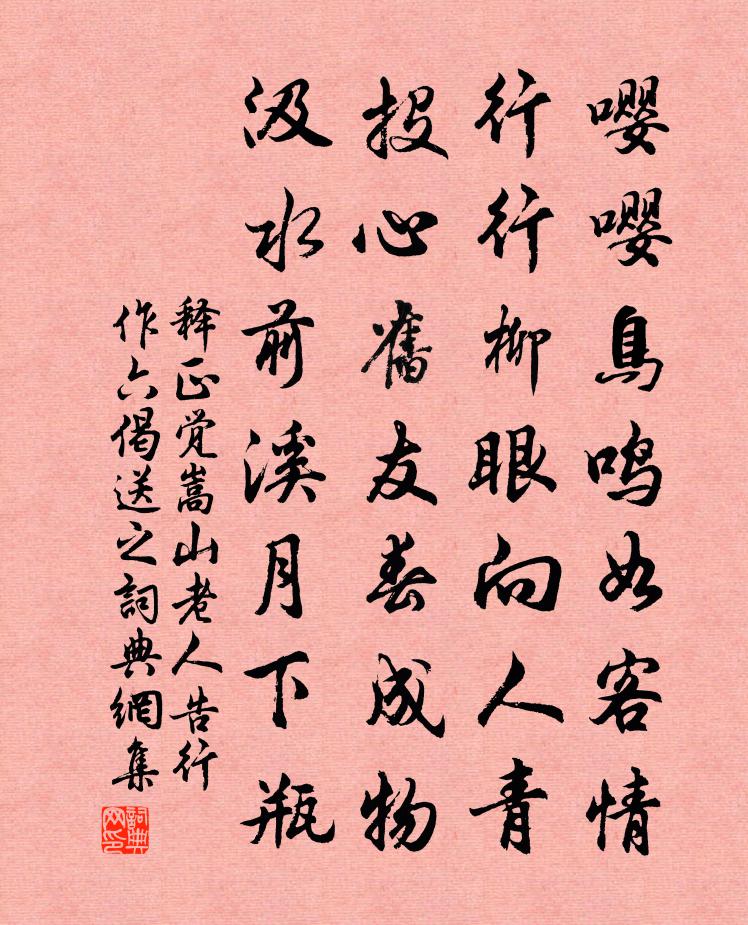 嚶嚶鳥鳴如客情
行行柳眼向人青
投心舊友春成物
汲水前溪月下瓶
释正觉嵩山老人告行
作六偈送之詞典網集
詞典网印